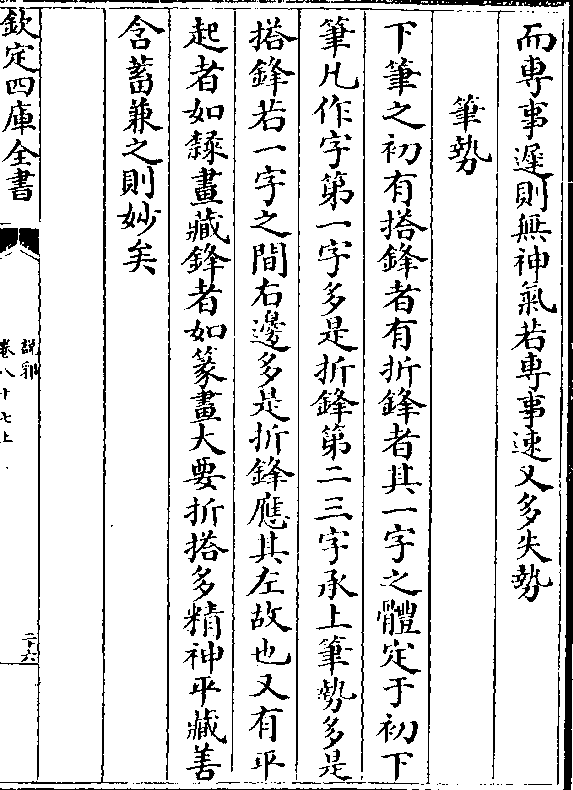 而專事遲則無神氣若專事速又多失勢
筆勢
下筆之初有搭鋒者有折鋒者其一字之體定于初下
筆凡作字第一字多是折鋒第二三字承上筆勢多是
搭鋒若一字之間右邊多是折鋒應其左故也又有平
起者如隸畫藏鋒者如篆畫大要折搭多精神平藏善
含蓄兼之則妙矣
欽定四庫全書
說郛
卷八十七上
二十六